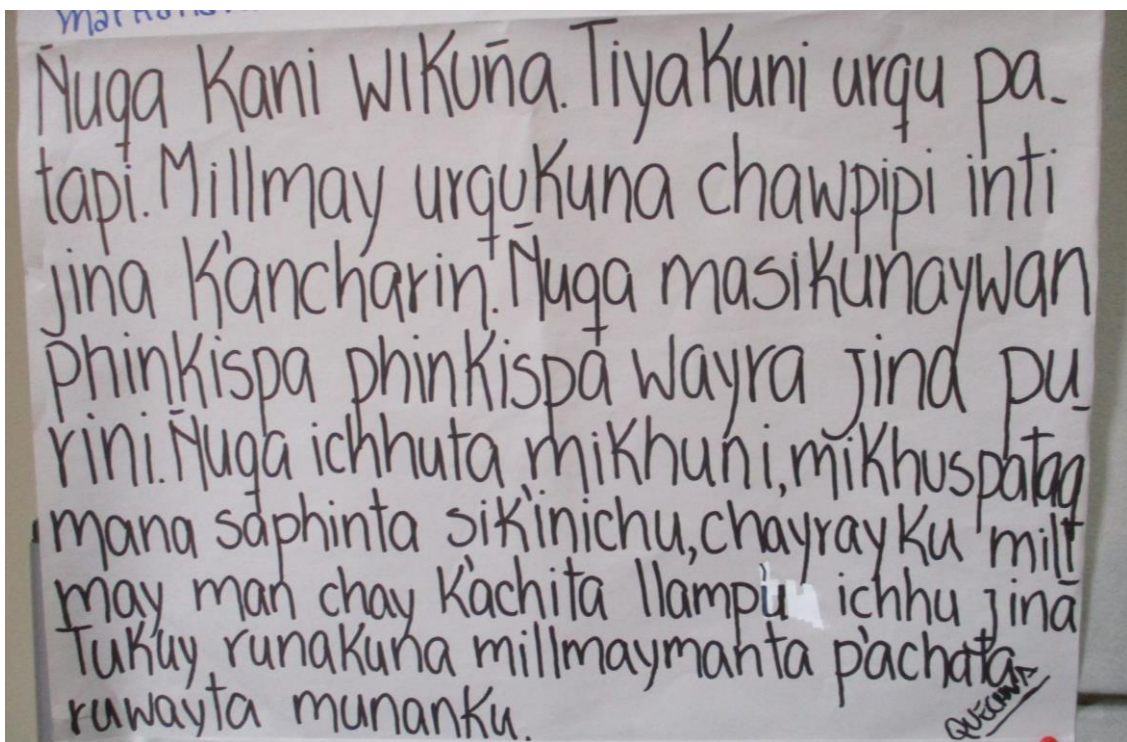 Ñuqa Kani wikuña. Tiyakuni urqu pa-
tapi. Millmay urqukuna chawpipi inti
jina k'ancharin. Ñuqa masikunaywan
phinkispa phinkispa wayra jina pu_
rini. Ñuqa ichhuta mikhuni, mikhuspataq
mana saphinta sik'inichu, chayrayku mill
may man chay k'achita llampu ichhu jina
Tukuy runakuna millmaymanta p'achata
ruwayta munanku.
QUECHUA